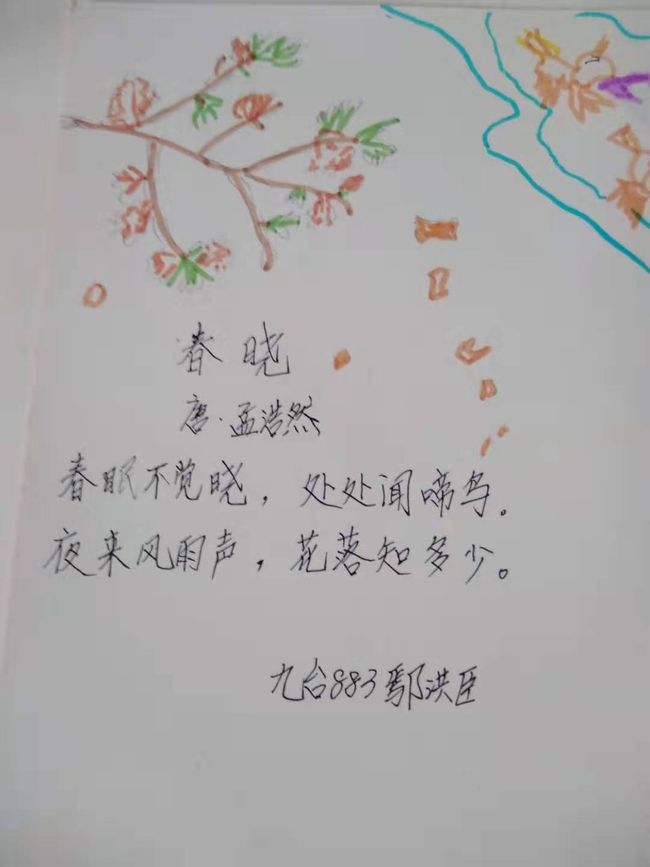 春晓
唐·孟浩然
春眠不觉晓，处处闻啼鸟。
夜来风雨声，花落知多少。
九台883鄢洪臣